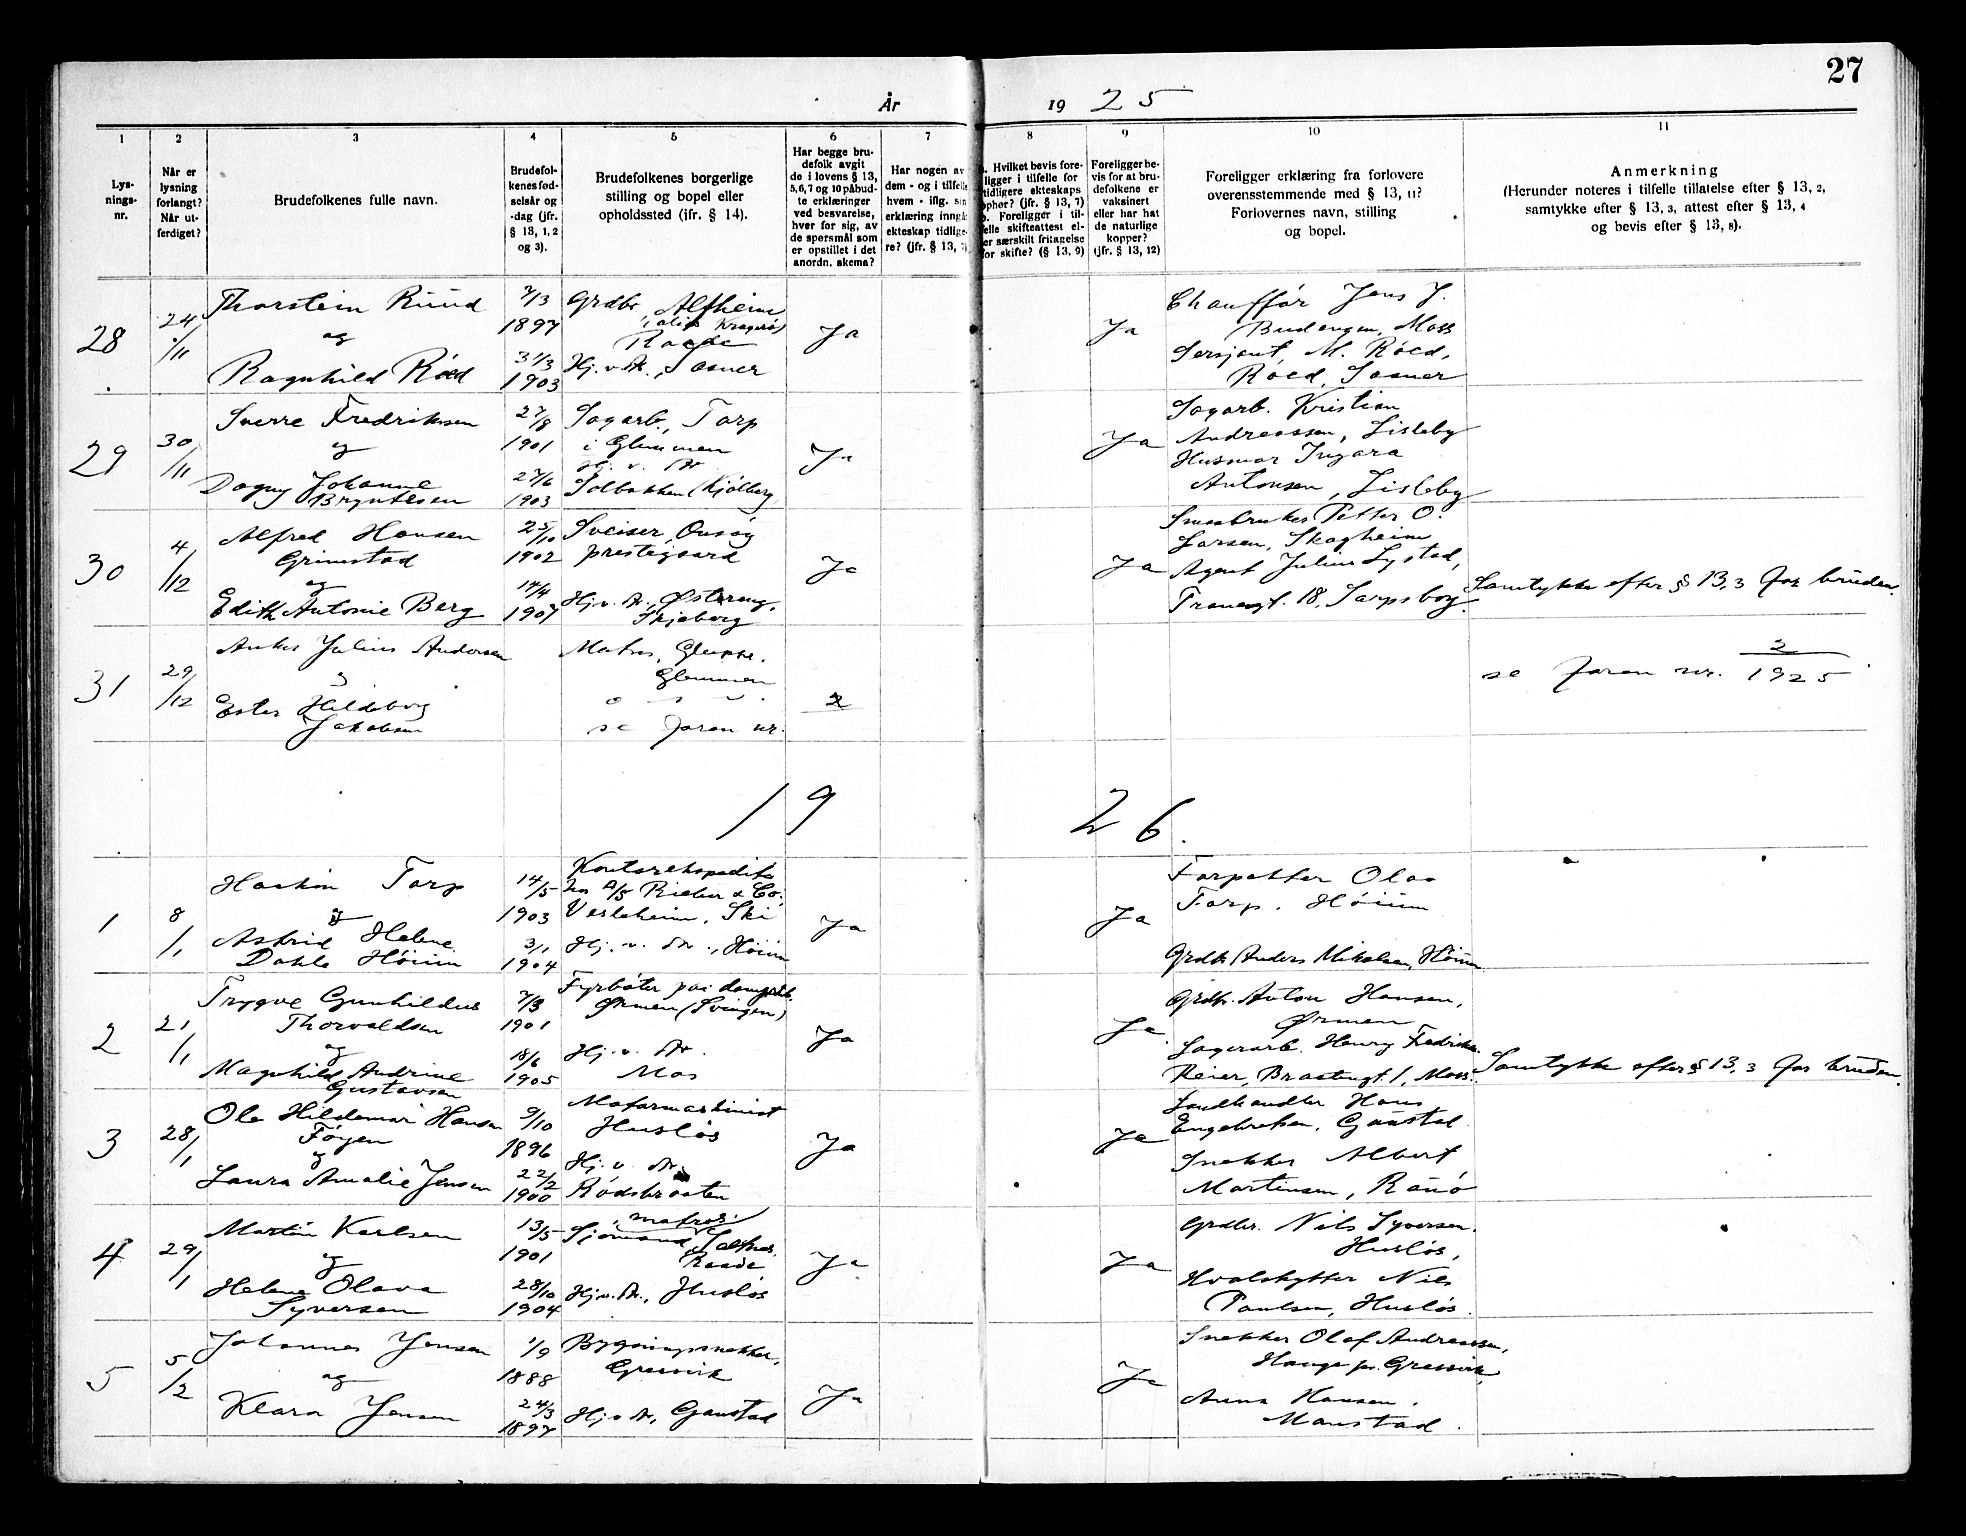 27
År 1925
1 2 3 4 5 6 7 8 9 10 11
Lys-
nings-
nr.
Når er
lysning
forlangt?
Når ut-
ferdiget?
Brudefolkenes fulle navn.
Brudefol-
kenes fød-
selsår og
-dag (jfr.
§ 13, 1, 2
og 3).
Brudefolkenes borgerlige
stilling og bopel eller
opholdssted (jfr. § 14).
Har begge bru-
defolk avgit
de i lovens § 13,
5,6,7 og 10 påbud-
te erklæringer
ved besvarelse,
hver for sig, av
de spørsmål som
er opstillet i det
anordn. skema?
Har nogen av
dem - og i tilfelle
hvem - iflg. sin
erklæring inngå
ekteskap tidlige-
re? (jfr. § 13,
Hvilket bevis fore-
ligger i tilfelle for
tidligere ekteskaps
ophør? (jfr. § 13, 7)
b. Foreligger i til-
felle skifteattest el-
ler særskilt fritagelse
for skifte? (§ 13, 9)
Foreligger be-
vis for at bru-
defolkene er
vaksinert
eller har hat
de naturlige
kopper?
(jfr. § 13, 12)
Foreligger erklæring fra forlovere
overensstemmende med § 13, 11?
Forlovernes navn, stilling
og bopel.
Anmerkning
(Herunder noteres i tilfelle tillatelse efter § 13, 2,
samtykke efter § 13, 3, attest efter § 13, 4
og bevis efter § 13, 8).
28
24/11
Thorstein Ruud
og
Ragnhild Røed
7/13
1897
31/3
1903
Grdbr. Alfheim
Raade
Hj. v. dr., Saner
Ja
Ja
Chauffør Jens J.
Budengen, Moss
Sersjant M. Røed,
Røed, Saner
29
30/11
Sverre Fredriksen
og
Dagny Johanne
Bryntesen
27/8
1901
27/6
1903
Sagarb., Torp
i Glemmen
Hj. v. dr.
Solbakken (Kjølberg
Ja
Ja
Sagarb. Kristian
Andreassen, Lisleby
Husmor Ingara
Antonsen, Lisleby
30
4/12
Alfred Hansen
Grimstad
og
Edith Antonie Berg
25/10
1902
14/4
1907
Sveiser, Onsøy
prestegaard
Hj. v. dr., Østereng,
Skjeberg
Ja
Ja
Smaabruker Petter O.
Larsen, Skogheim
Agent Julius Lystad,
Tranegt. 18, Sarpsborg.
Samtykke efter § 13, 3 for bruden.
31
29/12
Julius Andersen
og
Ester Hildeborg
Jakobsen
Matros, Gluppe.
Glemmen
se foran nr. 2
se foran nr. 2/1925
1926.
1
8/1
Haakon Torp
og
Astrid Helene
Dahle Høium
14/5
1903
3/1
1904
Kontorekspeditør
hos A/S Rieber & Co.
Vesleheim, Ski
Hj. v. dr., Høium
Ja
Ja
Forpakter Olav
Torp, Høium
Grdbr. Anders Mikalsen, Høium
2
21/1
Trygve Gunhildus
Thorvaldsen
og
Magnhild Andrine
Gustavsen
7/3
1901
18/6
1905
Fyrbøter paa dampsk.
Ørmen (Svingen)
Hj. v. dr.
Mos
Ja
Ja
Grdbr. Anton Hansen,
Ørmen
Lagerarb. Henry Fredrik
Reier, Braatengt. 1, Moss.
Samtykke efter § 13, 3 for bruden.
3
28/1
Ole Hildemar Hansen
Føyen
og
Laura Amalie Jensen
9/10
1896
22/2
1900
Motormaskinist
Husløs
Hj. v. dr.
Rødsbraaten
Ja
Ja
Landhandler Hans
Engebretsen, Gaustad
Snekker Albert
Martinsen, Rauø
4
29/1
Martin Karlsen
og
Helene Olava
Syversen
13/5
1901
28/10
1904
matros.
Sjømand,
Raade
Hj. v. dr., Husløs
Ja
Ja
Grdbr. Nils Syversen.
Husløs,
Hvalskytter Nils
Paulsen, Husløs.
5
5/2
Johannes Jensen
og
Klara Jensen
1/9
1888
24/3
1897
Bygningssnekker,
Gressvik
Hj. v. dr., Gaustad
Ja
Ja
Snekker Olaf Andreassen,
Hauge pr. Gressvik,
Anna Hansen.
Manstad.